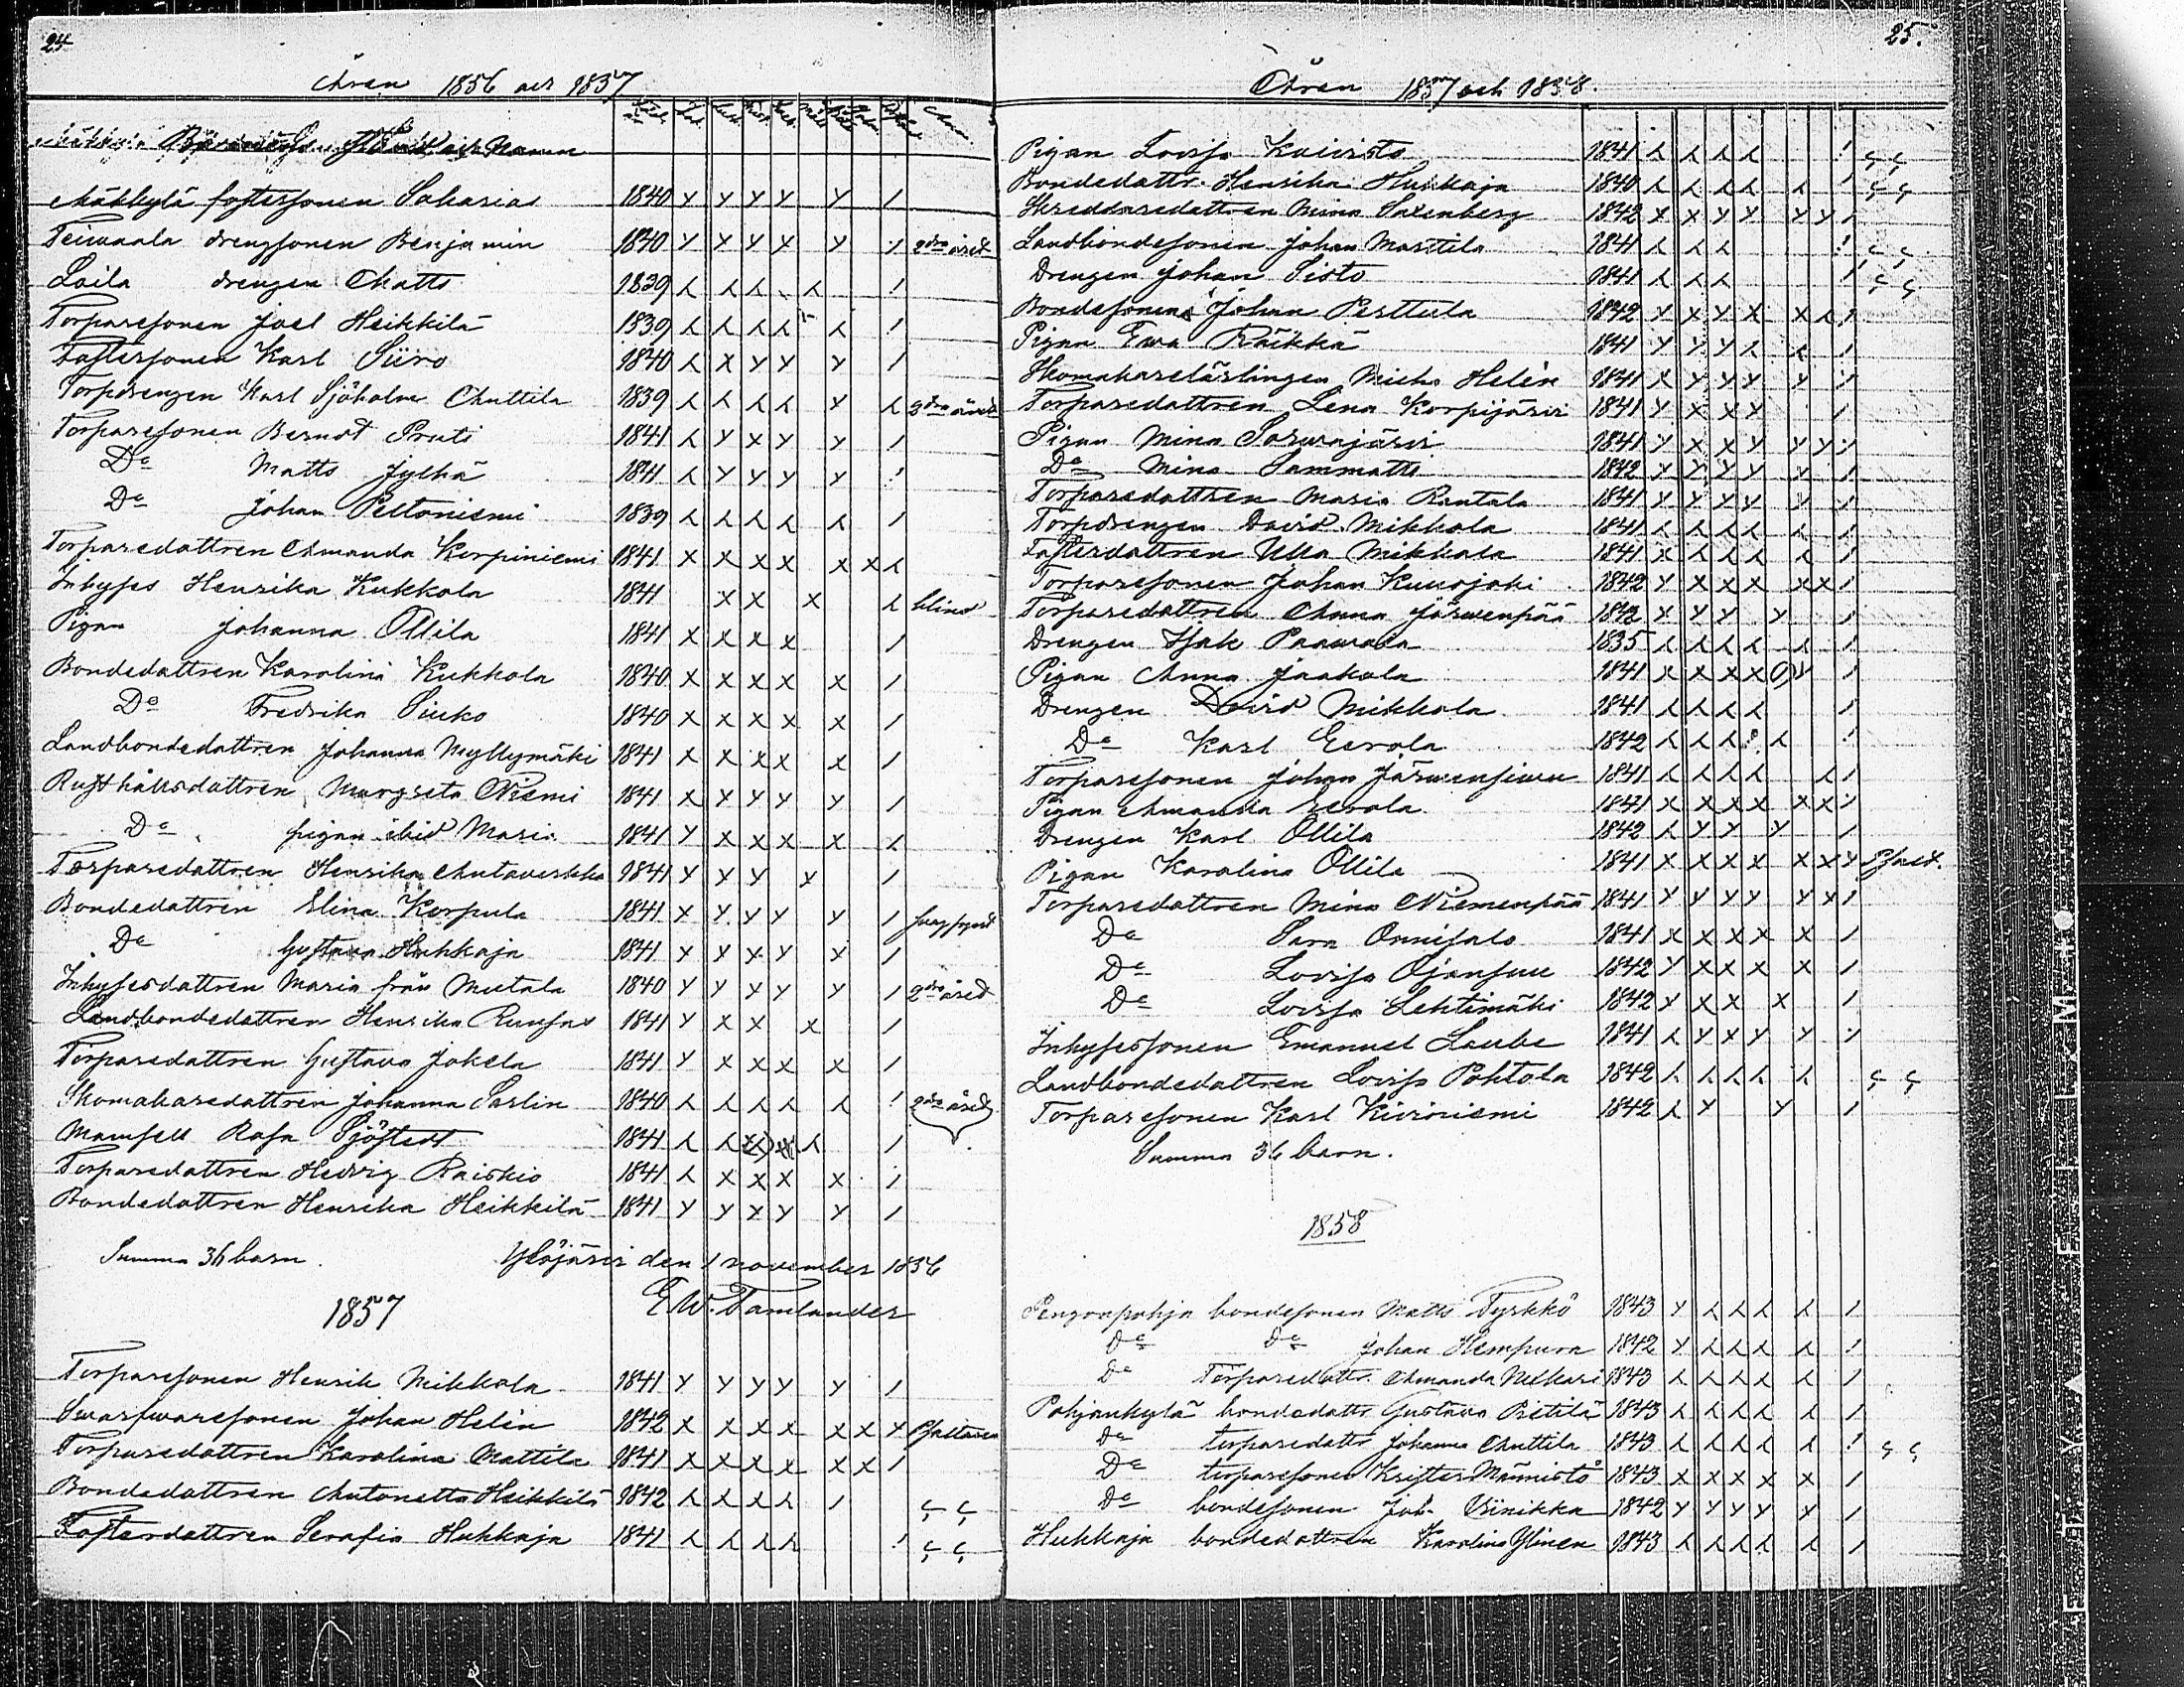 24
Åren 1856 och 1857
Barnens Stånd och Namn
Mäkkylä fostersonen Sakarias 1840 Y Y Y Y Y /
Teivaala drengsonen Benjamin 1840 Y Y Y Y Y / 2dra året
Laila drengen Matts 1839 λ λ λ λ /
Torparesonen Joel Heikkilä 1839 λ λ λ λ λ /
Fostersonen Karl Siiro 1840 λ X Y Y Y /
Torpdrengen Karl Sjöholm Anttila 1839 λ λ λ λ Y λ 2dra året
Torparesonen Berndt Pruti 1841 λ Y X Y Y /
Do Matts Jylhä 1841 λ Y Y Y Y /
Do Johan Peltoniemi 1839 λ λ λ λ λ /
Torparedattren Amanda Korpiniemi 1841 X X X X X X λ
Inhyses Henrika Kukkola 1841 X X X λ blind
Pigan Johanna Ollila 1841 X X X X /
Bondedattren Karolina Kukkola 1840 X X X X X /
Do Fredrika Siuko 1840 X X X X X /
Landbondedattren Johanna Myllymäki 1841 X X X X X /
Rusthållsdattren Margreta Niemi 1841 X Y Y Y Y /
Do pigan ibid Maria 1841 Y X X X X /
Torparedattren Henrika Antaverkka 1841 Y X Y X /
Bondedattren Elina Korpula 1841 X Y Y Y Y /
Do Gustava Hukkaja 1841 X Y X Y X /
Inhysesdattren Maria från Mutala 1840 Y Y X Y Y / 2dra året
Landbondedattren Henrika Ruufas 1841 Y X X X /
Torparedattren Gustava Jokela 1841 Y X X X X /
Skomakaredattren Johanna Sarlin 1840 λ λ λ λ λ ! 2dra året
Mamsell Rosa Sjöstedt 1841 λ λ λ /
Torparedattren Hedvig Raiskio 1841 λ X X X X /
Bondedattren Henrika Heikkilä 1841 Y Y X Y Y /
Summa 36 barn. Ylöjärvi den 1 november 1856
E W. Tamlander
1857
Torparesonen Henrik Mikkola 1841 Y Y Y Y Y /
Svarfvaresonen Johan Helén 1842 X X X X X X Y Psaltaren
Torparedattren Karolina Mattila 1841 X X X X X X /
Bondedattren Antonetta Heikkilä 1842 λ λ X λ / ç ç
Fosterdattren Serafia Hukkaja 1841 λ λ λ λ ! ç ç
25.
Åren 1857 och 1858.
Pigan Lovisa Koivisto 1841 λ λ λ λ ! ç ç
Bondedattr. Henrika Hukkaja 1840 λ λ λ λ λ ! ç ç
Skreddaredattren Mina Saxenberg 1842 X X Y Y Y Y /
Landbondesonen Johan Marttila 1841 λ λ λ ! ç ç
Drengen Johan Sisto 1841 λ λ λ / ç ç
Bondesonen Johan Perttula 1842 Y X Y X X λ /
Pigan Eva Räikkä 1841 Y Y Y λ λ /
Skomakarelärlingen Mich. Helén 1841 X Y Y Y Y /
Torparedattren Lena Korpijärvi 1841 Y X X Y /
Pigan Mina Sorvajärvi 1841 Y X X Y Y Y /
Do Mina Sammatti 1842 X Y Y Y Y /
Torparedattren Maria Rantala 1841 Y Y Y Y Y /
Torpdrengen David Mikkola 1841 λ λ λ λ λ /
Fosterdattren Ulla Mikkola 1841 X λ λ λ λ /
Torparesonen Johan Kuusjoki 1842 Y X X X X X /
Torparedattren Anna Järvenpää 1842 X Y Y Y /
Drengen Isak Paavola 1835 λ λ λ λ λ /
Pigan Anna Jaakola 1841 X X X X Y /
Drengen David Mikkola 1841 λ λ λ λ /
Do Karl Eerola 1842 λ λ λ λ !
Torparesonen Johan Järvensivu 1841 λ λ λ λ λ /
Pigan Amanda Eerola 1841 X X X X X X /
Drengen Karl Ollila 1842 λ Y Y Y /
Pigan Karolina Ollila 1841 X X X X X X Y Psalt.
Torparedattren Mina Niemenpää 1841 Y Y Y Y Y X /
Do Sara Onnisalo 1841 X X X X X /
Do Lovisa Ojansuu 1842 Y X X X X /
Do Lovisa Lehtimäki 1842 X X X X /
Inhysessonen Emanuel Laube 1841 λ Y X Y Y /
Landbondedattren Lovisa Pohtola 1842 λ λ λ λ λ ç ç
Torparesonen Karl Kiviniemi 1842 λ Y Y /
Summa 36 barn.
1858
Pengonpohja bondesonen Matts Tyrkkö 1843 Y λ λ λ λ /
Do Do Johan Hempura 1842 Y λ λ λ λ /
Do Torparedattr. Amanda Nukari 1843 λ λ λ λ λ /
Pohjankylä bondedattr Gustava Pietilä 1843 λ λ λ λ λ /
Do torparedattr Johanna Anttila 1843 λ λ λ λ λ ! ç ç
Do torparesonen Krister Männistö 1843 X X X X X /
Do bondesonen Joh. Vinikka 1842 Y Y Y Y Y /
Hukkaja bondedattren Karolina Ylinen 1843 λ λ λ λ λ /